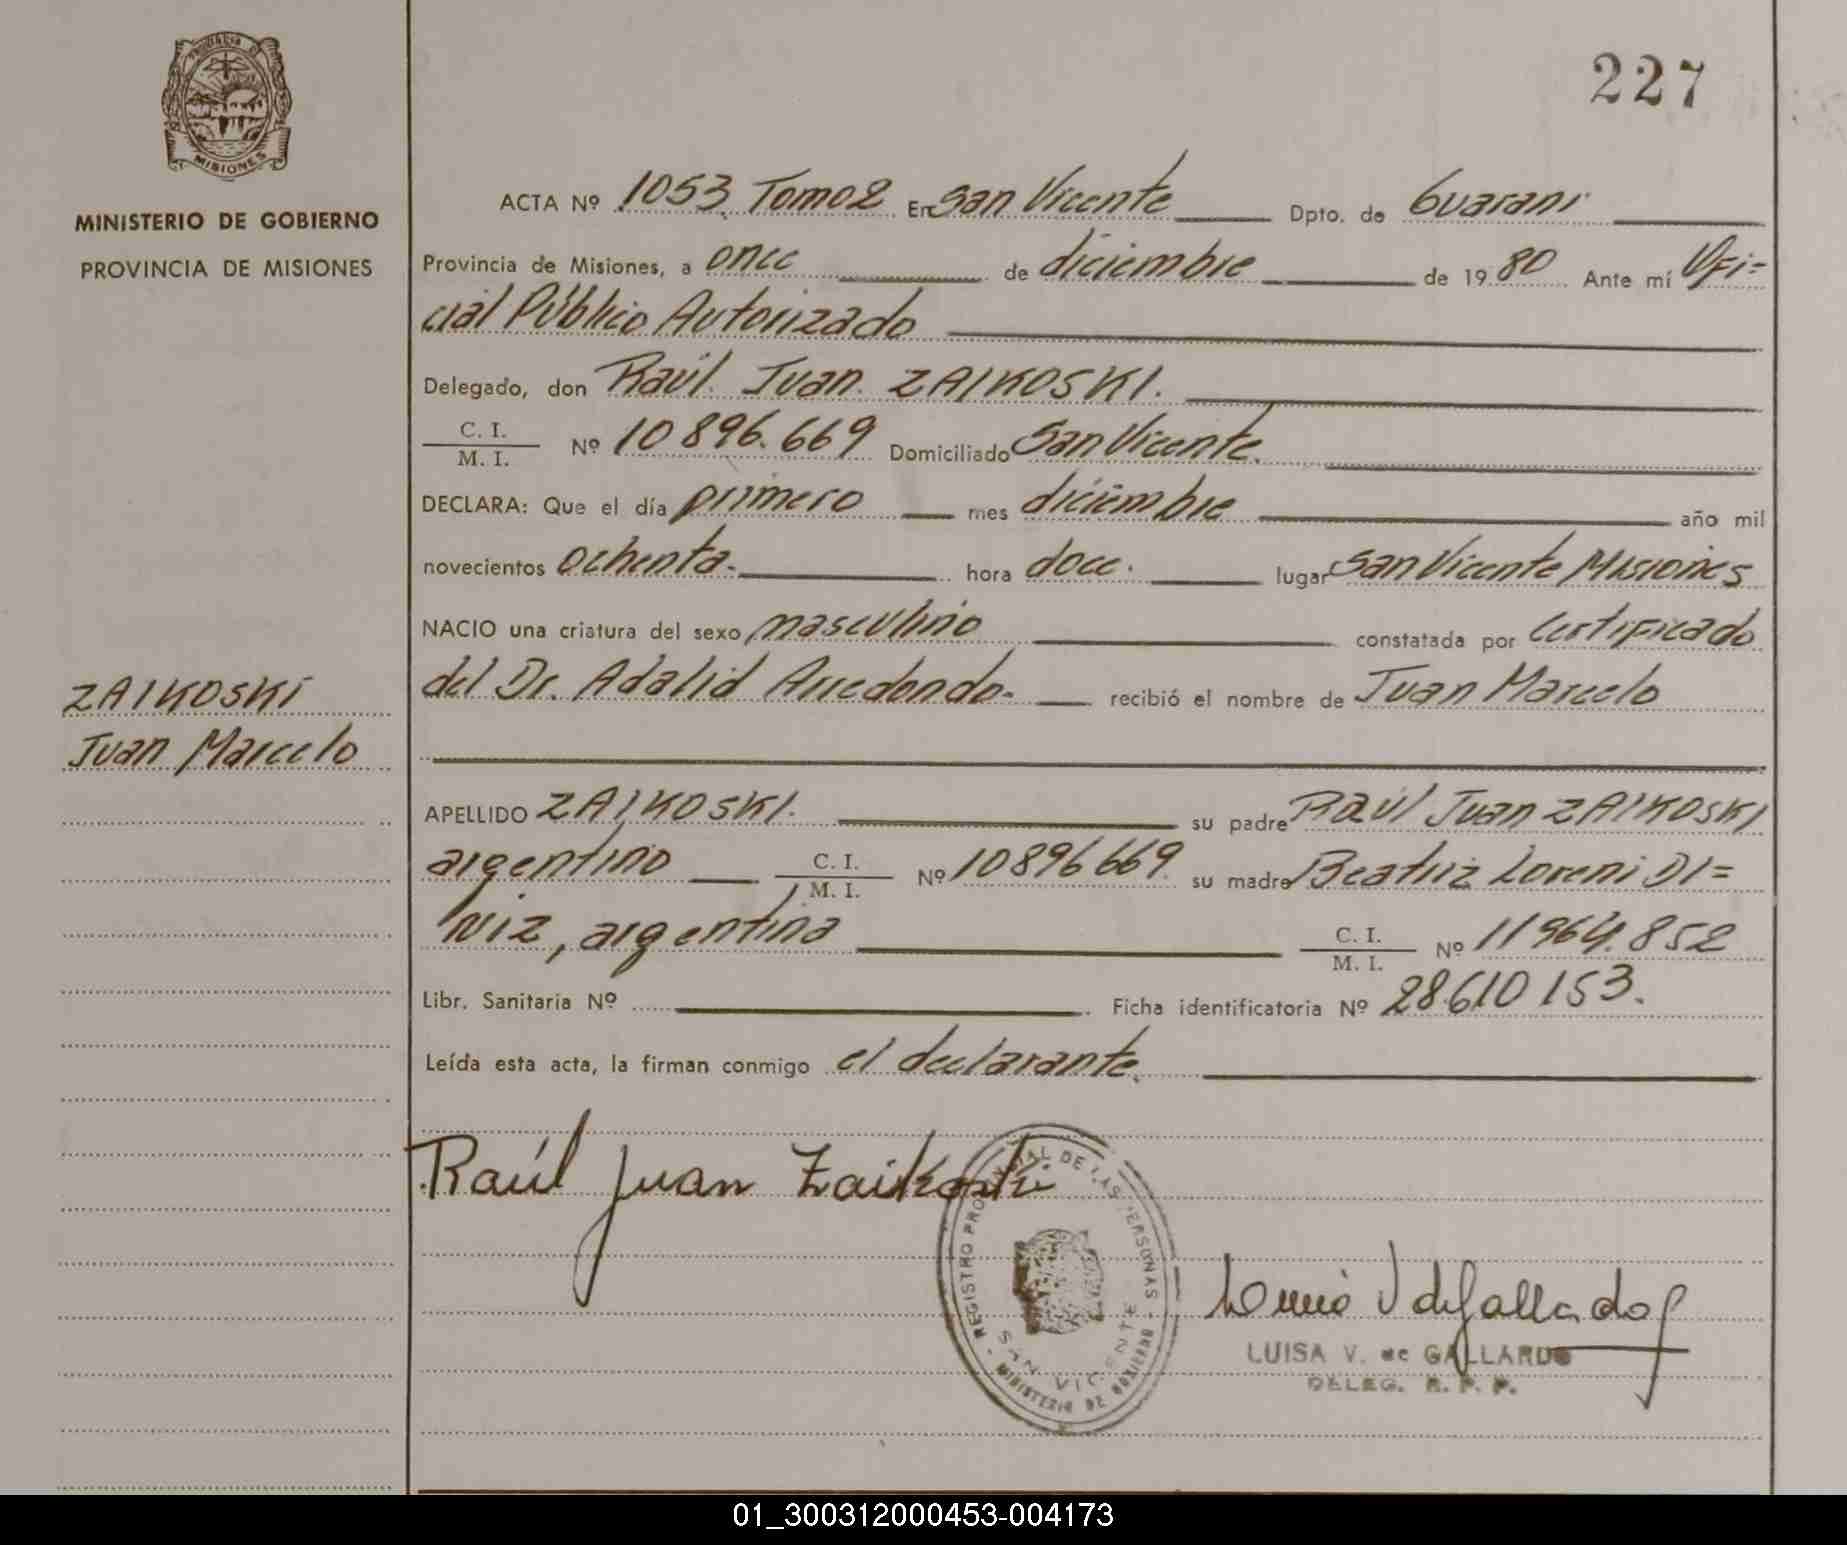 227
PROVINCIA DE
MISIONES
MINISTERIO DE GOBIERNO
PROVINCIA DE MISIONES
ACTA Nº 1053 Tomo 2 En San Vicente Dpto. de Guarani
Provincia de Misiones, a once de diciembre de 1980 Ante mí Ofi=
cial Público Autorizado
Delegado, don Raúl Juan ZAIKOSKI.
C. I. / M. I. Nº 10896.669 Domiciliado San Vicente.
DECLARA: Que el día primero mes diciembre año mil
novecientos ochenta. hora doce. lugar San Vicente Misiones
NACIO una criatura del sexo masculino constatada por certificado
del Dr. Adalid Arredondo. recibió el nombre de Juan Marcelo
ZAIKOSKI
Juan Marcelo
APELLIDO ZAIKOSKI. su padre Raúl Juan ZAIKOSKI
argentino C. I. / M. I. Nº 10896669. su madre Beatriz Loreni DI=
NIZ, argentina C. I. / M. I. Nº 11964.852
Libr. Sanitaria Nº Ficha identificatoria Nº 28.610153.
Leída esta acta, la firman conmigo el declarante.
Raúl Juan Zaikoski
REGISTRO PROVINCIAL DE LAS PERSONAS
SAN VICENTE
MINISTERIO DE GOBIERNO
Luisa V de Gallardo
LUISA V. de GALLARDO
DELEG. R. P. P.
01_300312000453-004173